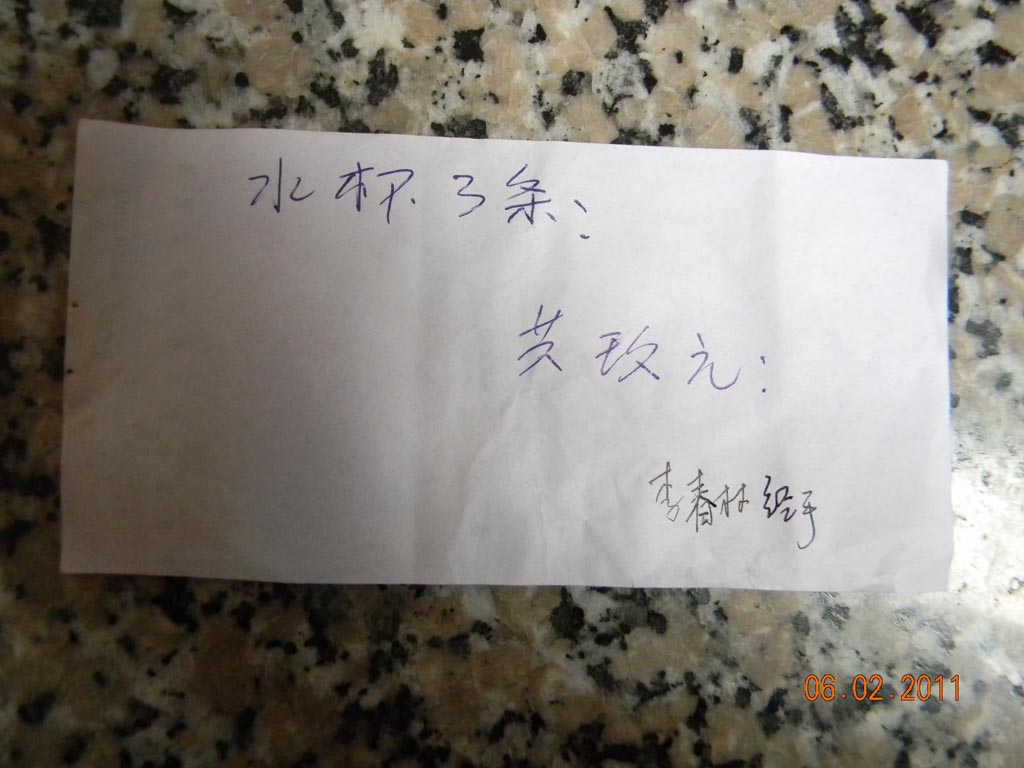 水杯3条:
共玖元:
李春林 经手
06.02.2011